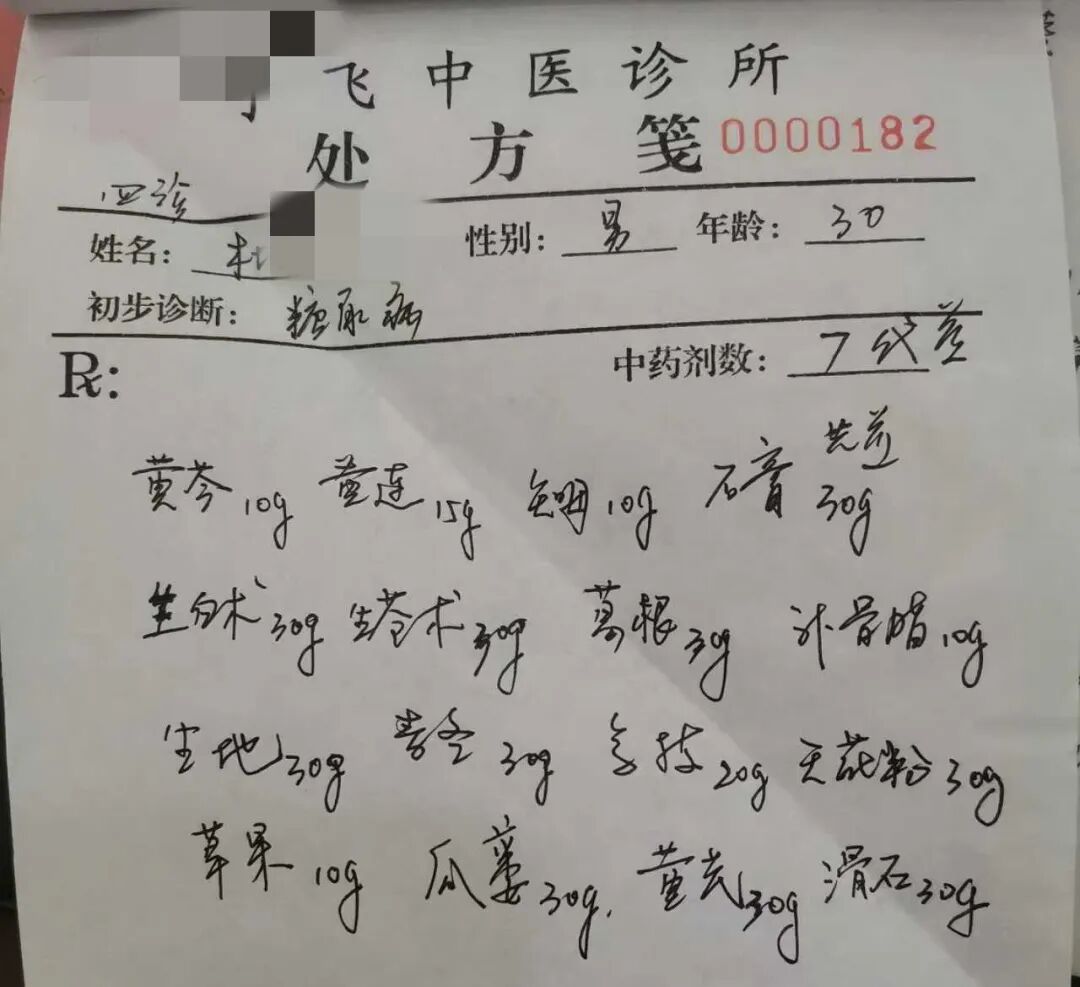 飞中医诊所
处方笺 0000182
四诊
姓名： 杜 性别： 男 年龄： 30
初步诊断： 糖尿病
R: 中药剂数： 7袋煎
先煎
黄芩10g 黄连15g 知母10g 石膏30g
生白术30g 生苍术30g 葛根30g 地骨皮10g
生地30g 30g 20g 天花粉30g
草果10g 瓜蒌30g. 黄芪30g 滑石30g